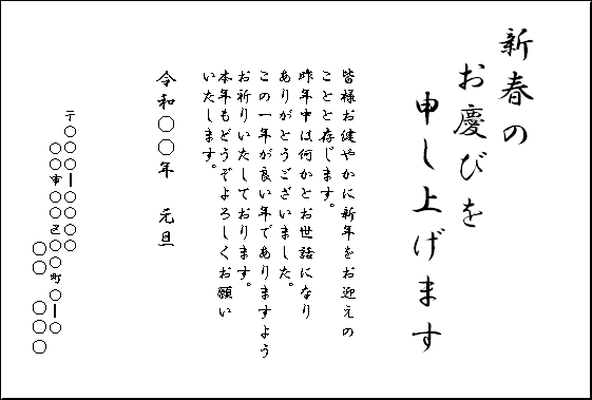 新春の
お慶びを
申し上げます
皆様お健やかに新年をお迎えの
ことと存じます。
昨年中は何かとお世話になり
ありがとうございました。
この一年が良い年でありますよう
お祈りいたしております。
本年もどうぞよろしくお願い
いたします。
令和〇〇年　元旦
〒〇〇〇ー〇〇〇〇
〇〇市〇〇区〇〇町〇ー〇
〇〇　〇〇〇